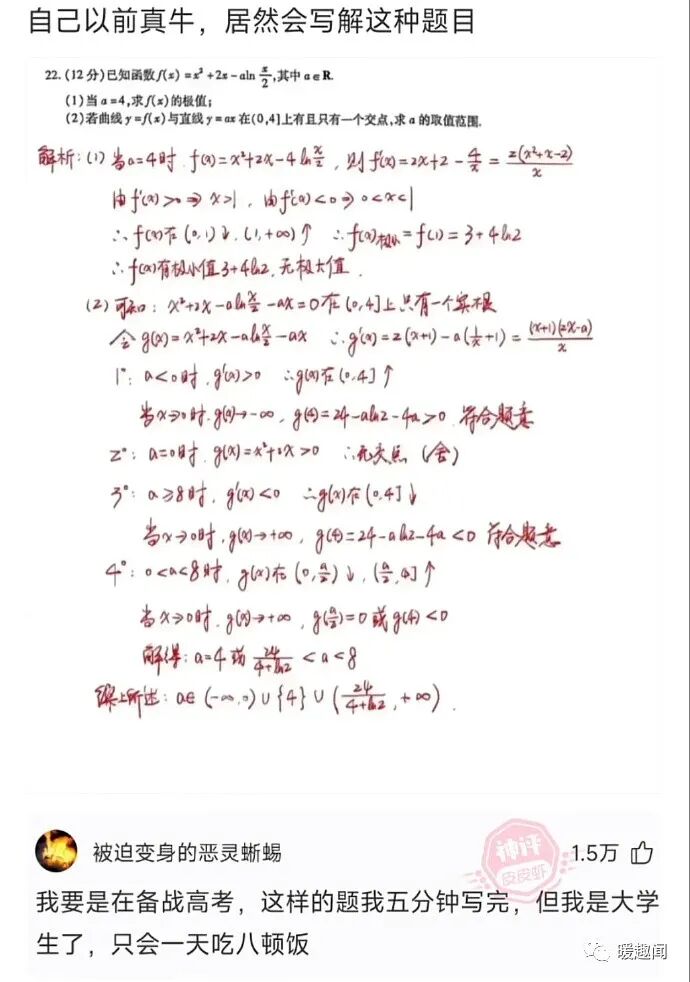 自己以前真牛，居然会写解这种题目
22.(12分)已知函数f(x)=x²+2x-aln x/2,其中a∈R.
(1)当a=4,求f(x)的极值;
(2)若曲线y=f(x)与直线y=ax在(0,4]上有且只有一个交点,求a的取值范围.
解析:(1)当a=4时.f(x)=x²+2x-4ln x/2，则f'(x)=2x+2-4/x=2(x²+x-2)/x
由f'(x)>0⇒x>1，由f'(x)<0⇒0<x<1
∴f(x)在(0,1)↓,(1,+∞)↑ ∴f(x)极小=f(1)=3+4ln2
∴f(x)有极小值3+4ln2,无极大值.
(2)可知：x²+2x-aln x/2-ax=0在(0,4]上只有一个实根
令g(x)=x²+2x-aln x/2-ax ∴g'(x)=2(x+1)-a(1/x+1)=(x+1)(2x-a)/x
1°:a<0时,g'(x)>0 ∴g(x)在(0,4]↑
当x→0时.g(x)→-∞，g(4)=24-aln2-4a>0.符合题意
2°:a=0时.g(x)=x²+2x>0 ∴无交点(舍)
3°:a≥8时,g'(x)<0 ∴g(x)在(0,4]↓
当x→0时,g(x)→+∞，g(4)=24-aln2-4a<0 符合题意
4°:0<a<8时,g(x)在(0,a/2)↓,(a/2,4]↑
当x→0时.g(x)→+∞,g(a/2)=0或g(4)<0
解得:a=4或24/(4+ln2)<a<8
综上所述:a∈(-∞,0)∪{4}∪(24/(4+ln2),+∞).
被迫变身的恶灵蜥蜴
神评
皮皮虾
1.5万
我要是在备战高考，这样的题我五分钟写完，但我是大学
生了，只会一天吃八顿饭
暖趣闻